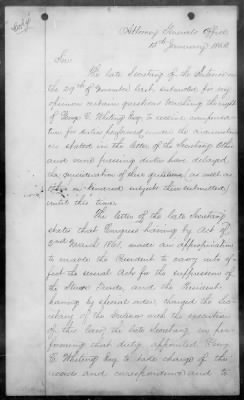 Copy
Attorney General's Office
15th January 1863
Sir
The late Secretary of the Interior on
the 29th of November last, submitted for my
opinion certain questions touching the right
of George C. Whiting Esq. to receive compensation
for duties performed under the circumstances
as stated in the letter of the Secretary. Other
and more pressing duties have delayed
the consideration of these questions (as well as
other on kindred subjects then submitted)
until this time.
The letter of the late Secretary
states that Congress having by Act of
2nd March 1861, made an appropriation
to enable the President to carry into ef-
fect the several Acts for the suppression of
the Slave Trade, and the President
having by special order, charged the Sec-
retary of the Interior with the execution
of this law, the late Secretary in per-
forming that duty, appointed George
C. Whiting Esq. to take charge of the
records and correspondence and to